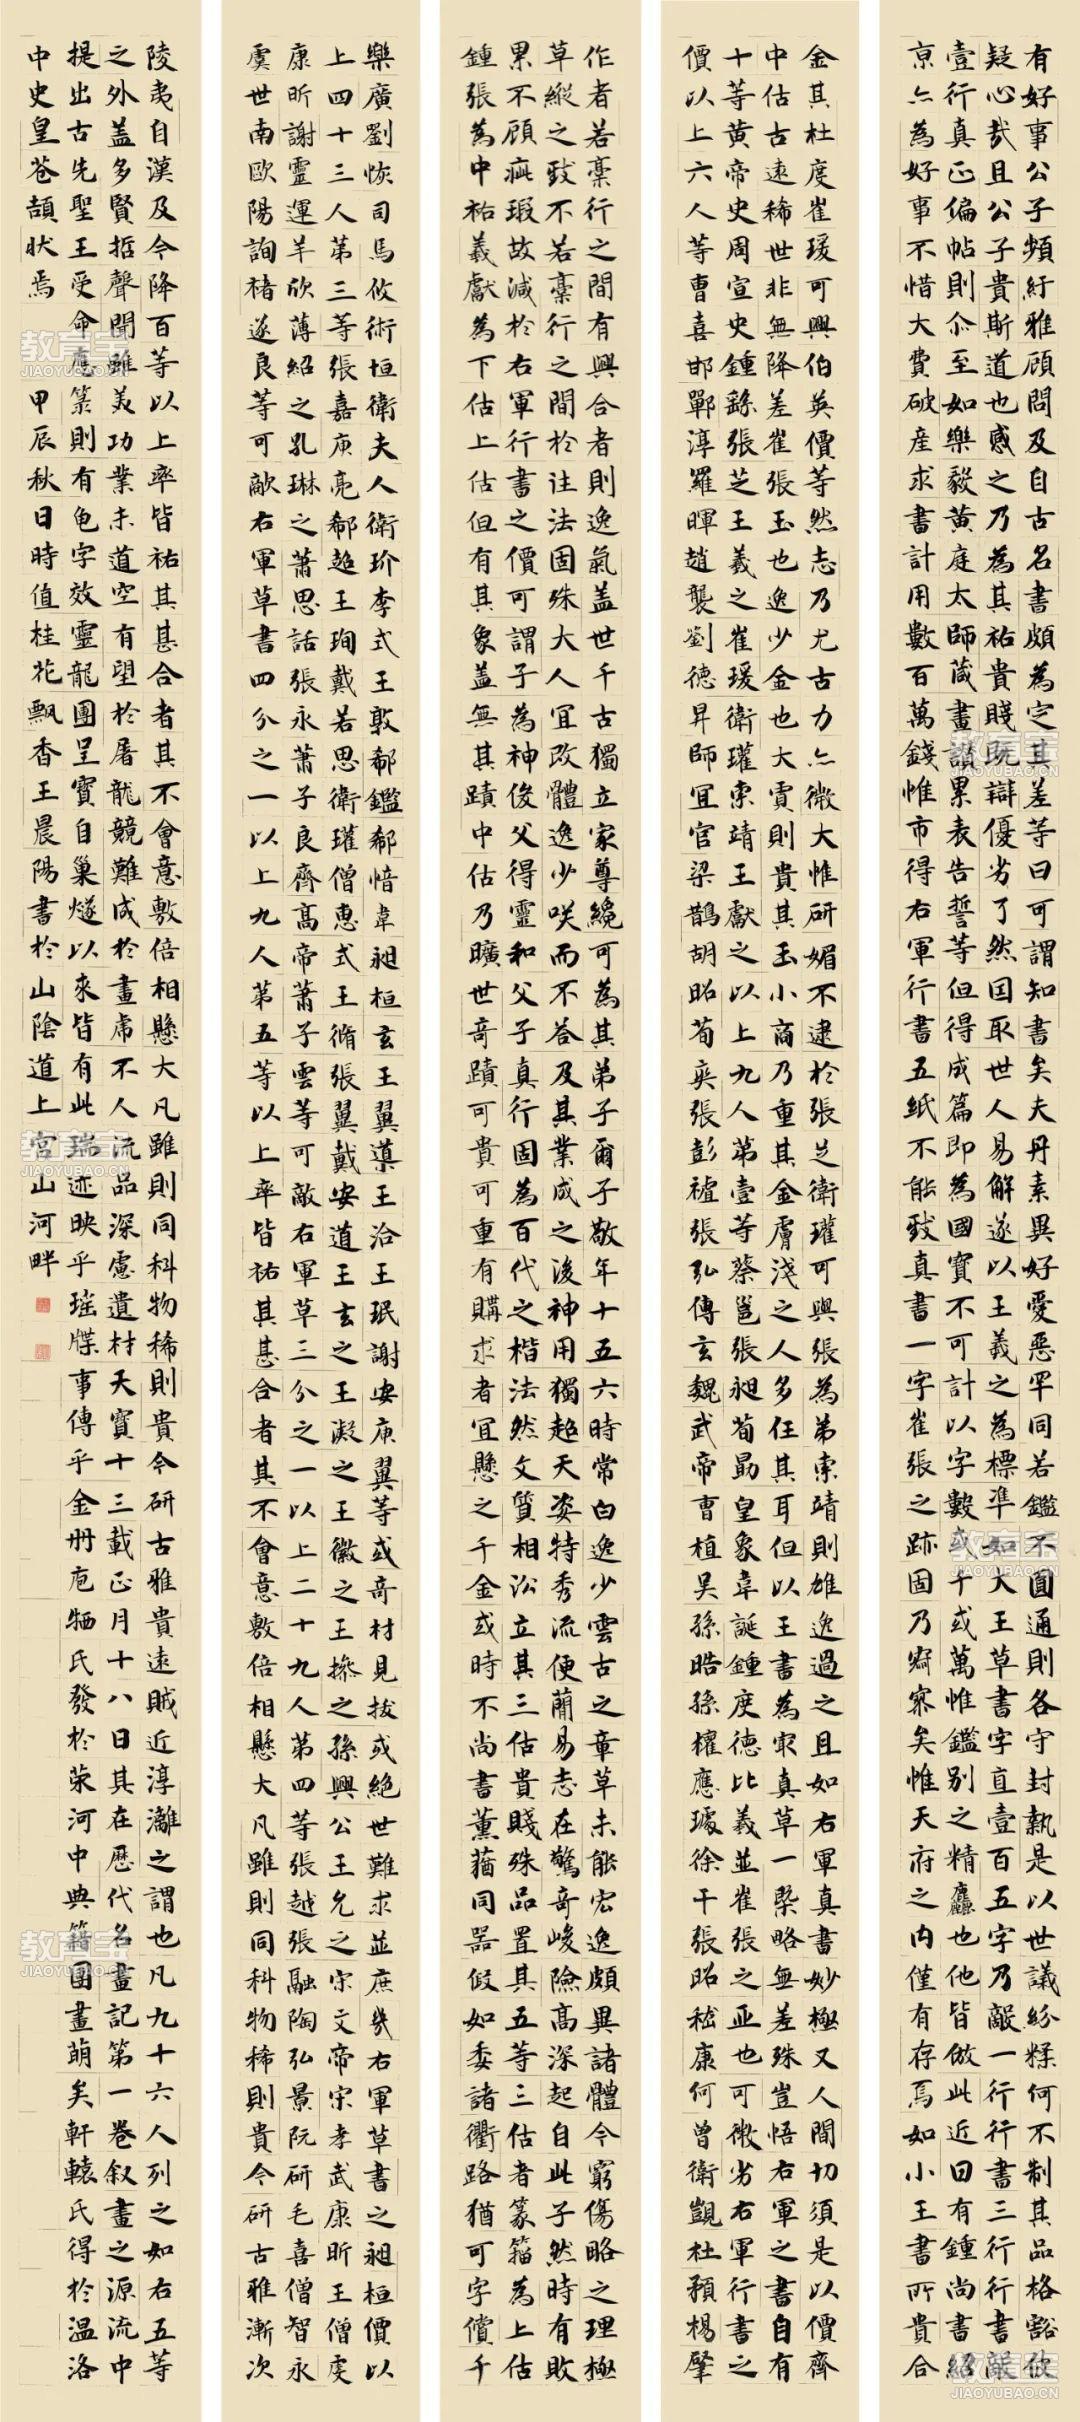 有好事公子頻紆雅顧問及自古名書頗為定其差等曰可謂知書矣夫丹素異好愛惡罕同若鑑不圓通則各守封執是以世議紛糅何不制其品格豁彼
疑心哉且公子貴斯道也感之乃為其祐貴賤既辯優劣了然因取世人易解遂以王羲之為標準如大王草書字直壹百五字乃敵一行行書三行行書敵
壹行真正偏帖則尒至如樂毅黃庭太師箴畫讚累表告誓等但得成篇即為國寶不可計以字數或千或萬惟鑑別之精麤也他皆倣此近曰有鍾尚書紹
京亦為好事不惜大費破產求書計用數百萬錢惟市得右軍行書五紙不能致真書一字崔張之跡固乃寂寥矣惟天府之內僅有存焉如小王書所貴合
金其杜度崔瑗可與伯英價等然志乃尤古力亦微大惟研媚不逮於張芝衛瓘可與張為弟索靖則雄逸過之且如右軍真書妙極又人間切須是以價齊
中估古遠稀世非無降差崔張玉也逸少金也大賈則貴其玉小商乃重其金膚淺之人多任其耳但以王書為最真草一槩略無差殊豈悟右軍之書自有
十等黃帝史周宣史鍾繇張芝王羲之崔瑗衛瓘索靖王獻之以上九人第壹等蔡邕張昶荀勗皇象韋誕鍾度德比義並崔張之亞也可微劣右軍行書之
價以上六人等曹喜邯鄲淳羅暉趙襲劉德昇師宜官梁鵠胡昭荀爽張彭祖張弘傳玄魏武帝曹植吳孫晧孫權應璩徐干張昭嵇康何曾衛覬杜預楊肇
作者若稾行之間有興合者則逸氣盖世千古獨立家尊纔可為其弟子爾子敬年十五六時常白逸少雲古之章草未能宏逸頗異諸體今窮傷略之理極
草縱之致不若稾行之間於往法固殊大人宜改體逸少咲而不答及其業成之後神用獨超天姿特秀流便蕳易志在驚奇峻險高深起自此子然時有敗
累不顧疵瑕故減於右軍行書之價可謂子為神俊父得靈和父子真行固為百代之楷法然文質相訟立其三估貴賤殊品置其五等三估者篆籀為上估
鍾張為中祐羲獻為下估上估但有其象盖無其蹟中估乃曠世奇蹟可貴可重有購求者宜懸之千金或時不尚書薰蕕同器假如委諸衢路猶可字償千
樂廣劉恢司馬攸術恒衛夫人衛玠李式王敦郗鑑郗愔韋昶桓玄王翼導王洽王珉謝安庾翼等或奇材見拔或絕世難求並庶幾右軍草書之昶桓價以
上四十三人第三等張嘉庾亮郗超王珣戴若思衛瓘僧惠式王脩張翼戴安道王玄之王凝之王徽之王操之孫興公王允之宋文帝宋孝武康昕王僧虔
康昕謝靈運羊欣薄紹之孔琳之蕭思話張永蕭子良齊高帝蕭子雲等可敵右軍草三分之一以上二十九人第四等張越張融陶弘景阮研毛喜僧智永
虞世南歐陽詢褚遂良等可敵右軍草書四分之一以上九人第五等以上率皆祐其甚合者其不會意數倍相懸大凡雖則同科物稀則貴今研古雅漸次
陵夷自漢及今降百等以上率皆祐其甚合者其不會意數倍相懸大凡雖則同科物稀則貴今研古雅貴遠賊近淳漓之謂也凡九十六人列之如右五等
之外盖多賢哲聲聞雖美功業未道空有望於屠龍競難成於畫虎不人流品深慮遺材天寶十三載正月十八日其在歷代名畫記第一卷叙畫之源流中
提出古先聖王受命應籙則有龟字效靈龍圖呈寶自巢燧以來皆有此瑞迹映乎瑶牒事傳乎金册庖牺氏發於荣河中典籍圖畫萌矣軒轅氏得於温洛
中史皇苍頡狀焉 甲辰秋日時值桂花飘香王晨陽書於山陰道上宮山河畔
教育宝
JIAOYUBAO.CN
教育宝
JIAOYUBAO.CN
教育宝
JIAOYUBAO.CN
教育宝
JIAOYUBAO.CN
教育宝
JIAOYUBAO.CN
教育宝
JIAOYUBAO.CN